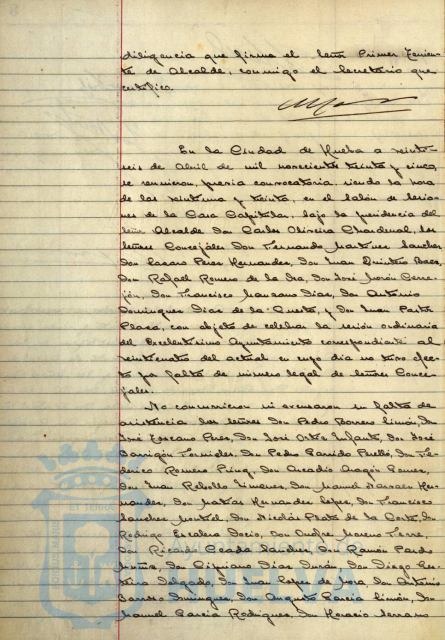 diligencia que firma el Señor Primer Tenien-
te de Alcalde, conmigo el Secretario que
certifico.
En la Ciudad de Huelva a veinti-
seis de Abril de mil novecientos treinta y cinco,
se reunieron, previa convocatoria, siendo la hora
de las veintiuna y treinta, en el salón de sesio-
nes de la Casa Capitular, bajo la presidencia del
Señor Alcalde Don Carlos Oliveira Chardenal, los
Señores Concejales Don Fernando Martinez Sanchez,
Don Lazaro Perez Hernandez, Don Juan Quintero Baez,
Don Rafael Romero de la Osa, Don José Morón Carre-
, Don Francisco Manzano Diaz, Don Antonio
Dominguez Diaz de la Questa, y Don Juan Pastor
Plaza, con objeto de celebrar la sesión ordinaria
del Excelentísimo Ayuntamiento correspondiente al
veinticuatro del actual en cuyo dia no tuvo efec-
to por falta de número legal de Señores Conce-
jales.
No concurrieron ni excusaron su falta de
asistencia los Señores Don Pedro Borrero Limón, Don
José Toscano Perez, Don José Ortiz Infante, Don José
Barrigón Fornieles, Don Pedro Garrido Perelló, Don Fe-
derico Romero, Don Arcadio Aragón Gomez,
Don Juan Rebollo Jimenez, Don Manuel Narvaez Her-
nandez, Don Matías Hernandez Lopez, Don Francisco
Sanchez, Don Nicolás Prats de la Corte, Don
Rodrigo Escalera, Don Onofre Moreno,
Don Ricardo Sanchez, Don Ramón Pardo
Muñiz, Don Cipriano Diaz Durán, Don Diego Cen-
teno Delgado, Don Juan Lopez de Mora, Don Antonio
Barroso Dominguez, Don Augusto Garcia Limón, Don
Manuel Garcia Rodriguez, Don Horacio Serrano